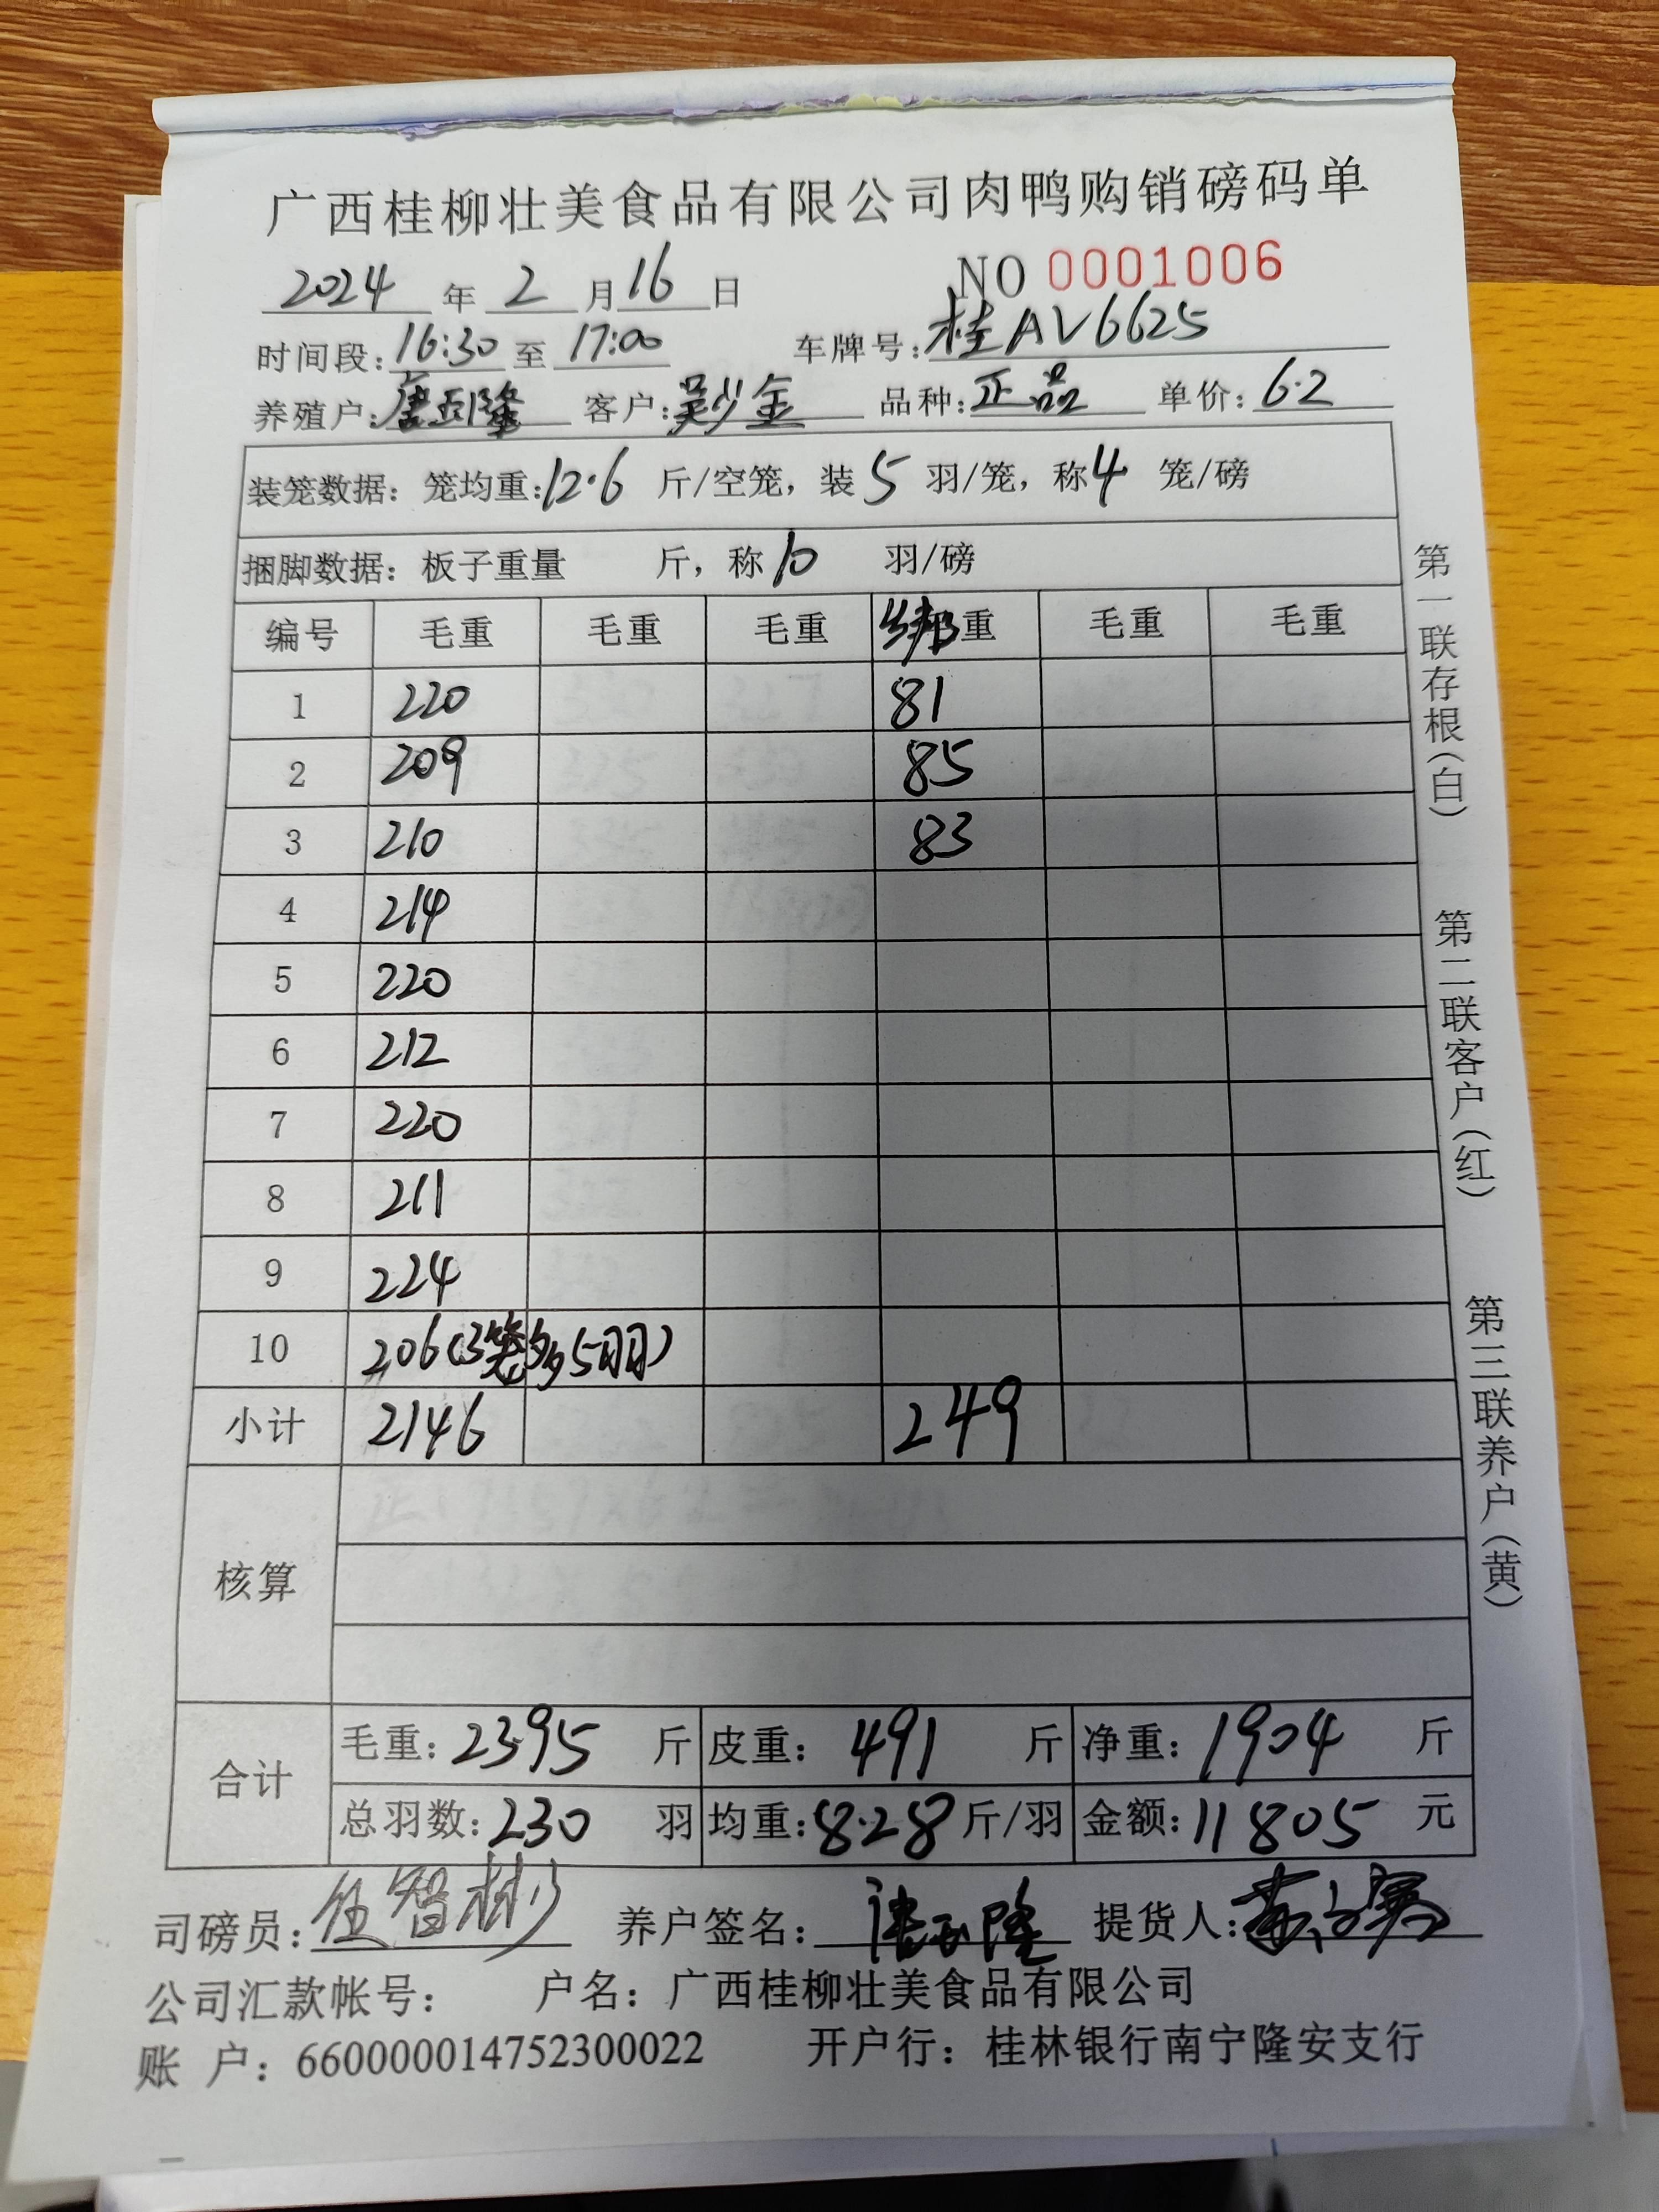 广西桂柳壮美食品有限公司肉鸭购销磅码单
2024 年 2 月 16 日 NO 0001006
时间段: 16:30 至 17:00 车牌号: 桂AV6625
养殖户: 唐玉隆 客户: 吴少金 品种: 正品 单价: 6.2
装笼数据: 笼均重: 12.6 斤/空笼, 装 5 羽/笼, 称 4 笼/磅
捆脚数据: 板子重量 斤, 称 10 羽/磅
编号 毛重 毛重 毛重 绑重 毛重 毛重
1 220 81
2 209 85
3 210 83
4 214
5 220
6 212
7 220
8 211
9 224
10 206(3笼多5羽)
小计 2146 249
核算
合计
毛重: 2395 斤 皮重: 491 斤 净重: 1904 斤
总羽数: 230 羽 均重: 8.28 斤/羽 金额: 11805 元
司磅员: 伍智彬 养户签名: 唐玉隆 提货人:
公司汇款帐号: 户名: 广西桂柳壮美食品有限公司
账 户: 660000014752300022 开户行: 桂林银行南宁隆安支行
第一联存根(白)
第二联客户(红)
第三联养户(黄)